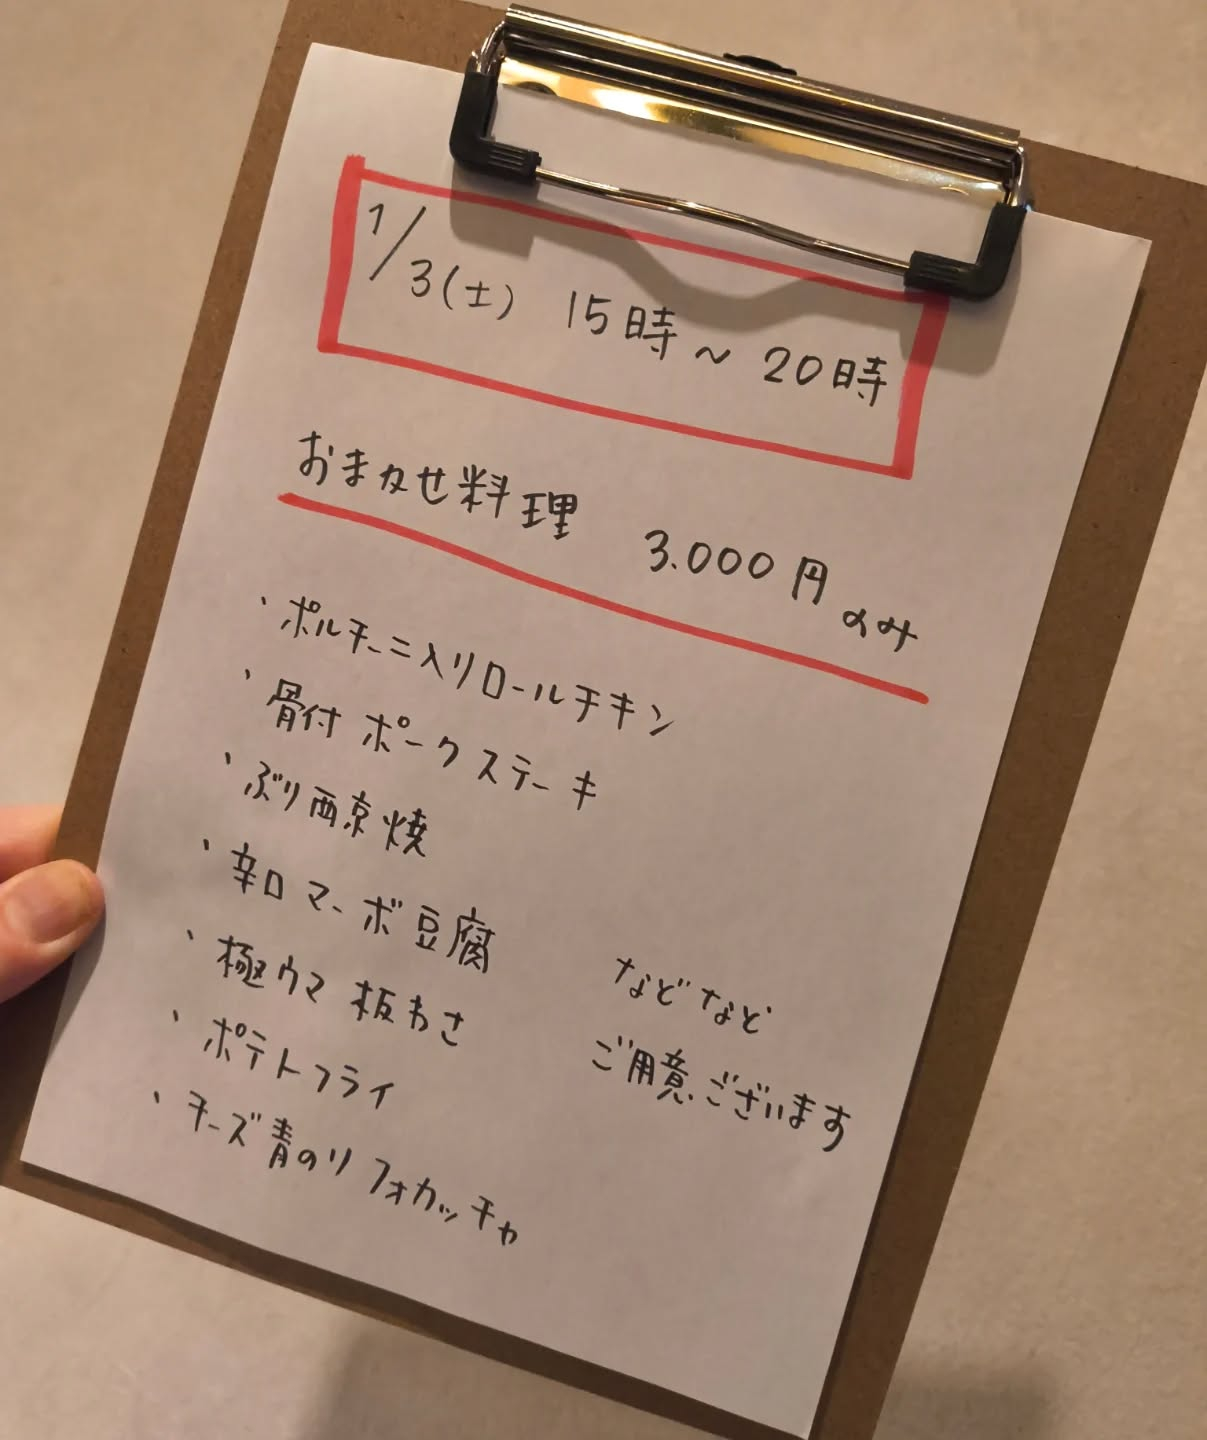 1/3(土) 15時～20時
おまかせ料理 3.000円のみ
・ポルチーニ入りロールチキン
・骨付ポークステーキ
・ぶり西京焼
・辛口マーボ豆腐
・極ウマ板わさ
・ポテトフライ
・チーズ青のりフォカッチャ
などなど
ご用意ございます